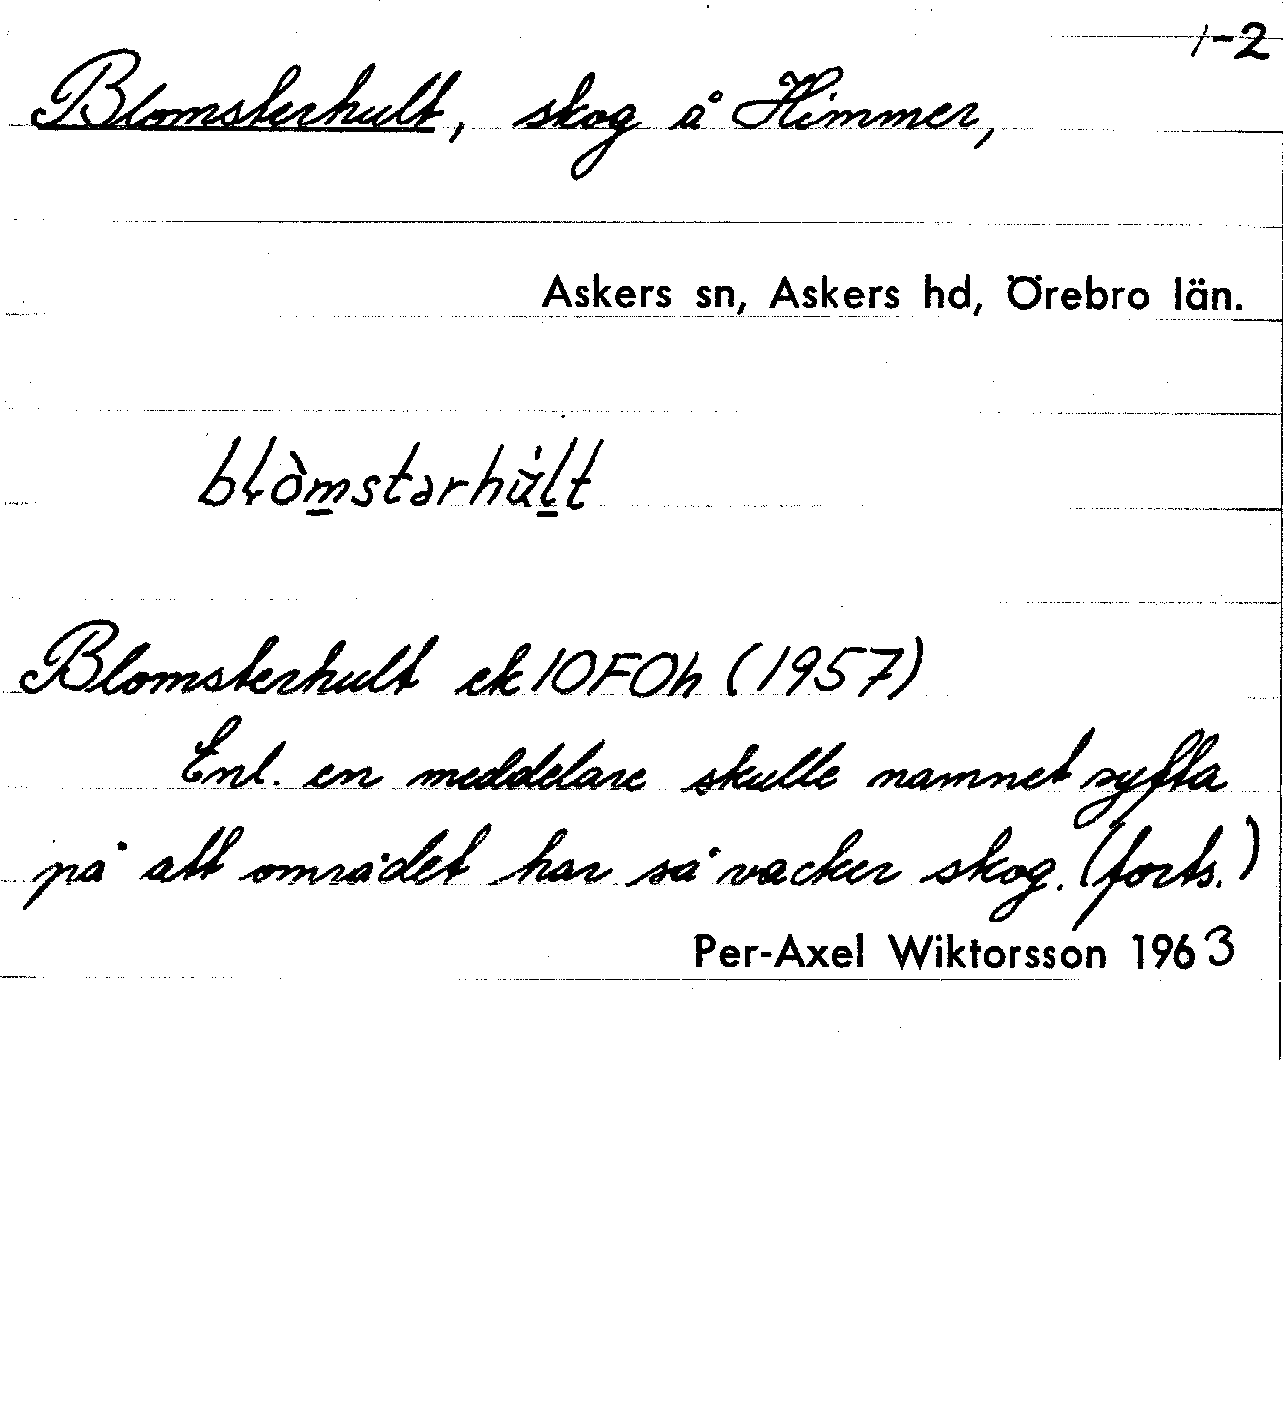 1-2
Blomsterhult, skog å Himmer,
Askers sn, Askers hd, Örebro län.
blòm̲stərhu̇̀l̲t
Blomsterhult ek 10F0h (1957)
Enl. en meddelare skulle namnet syfta
på att området har så vacker skog. (forts.)
Per-Axel Wiktorsson 1963